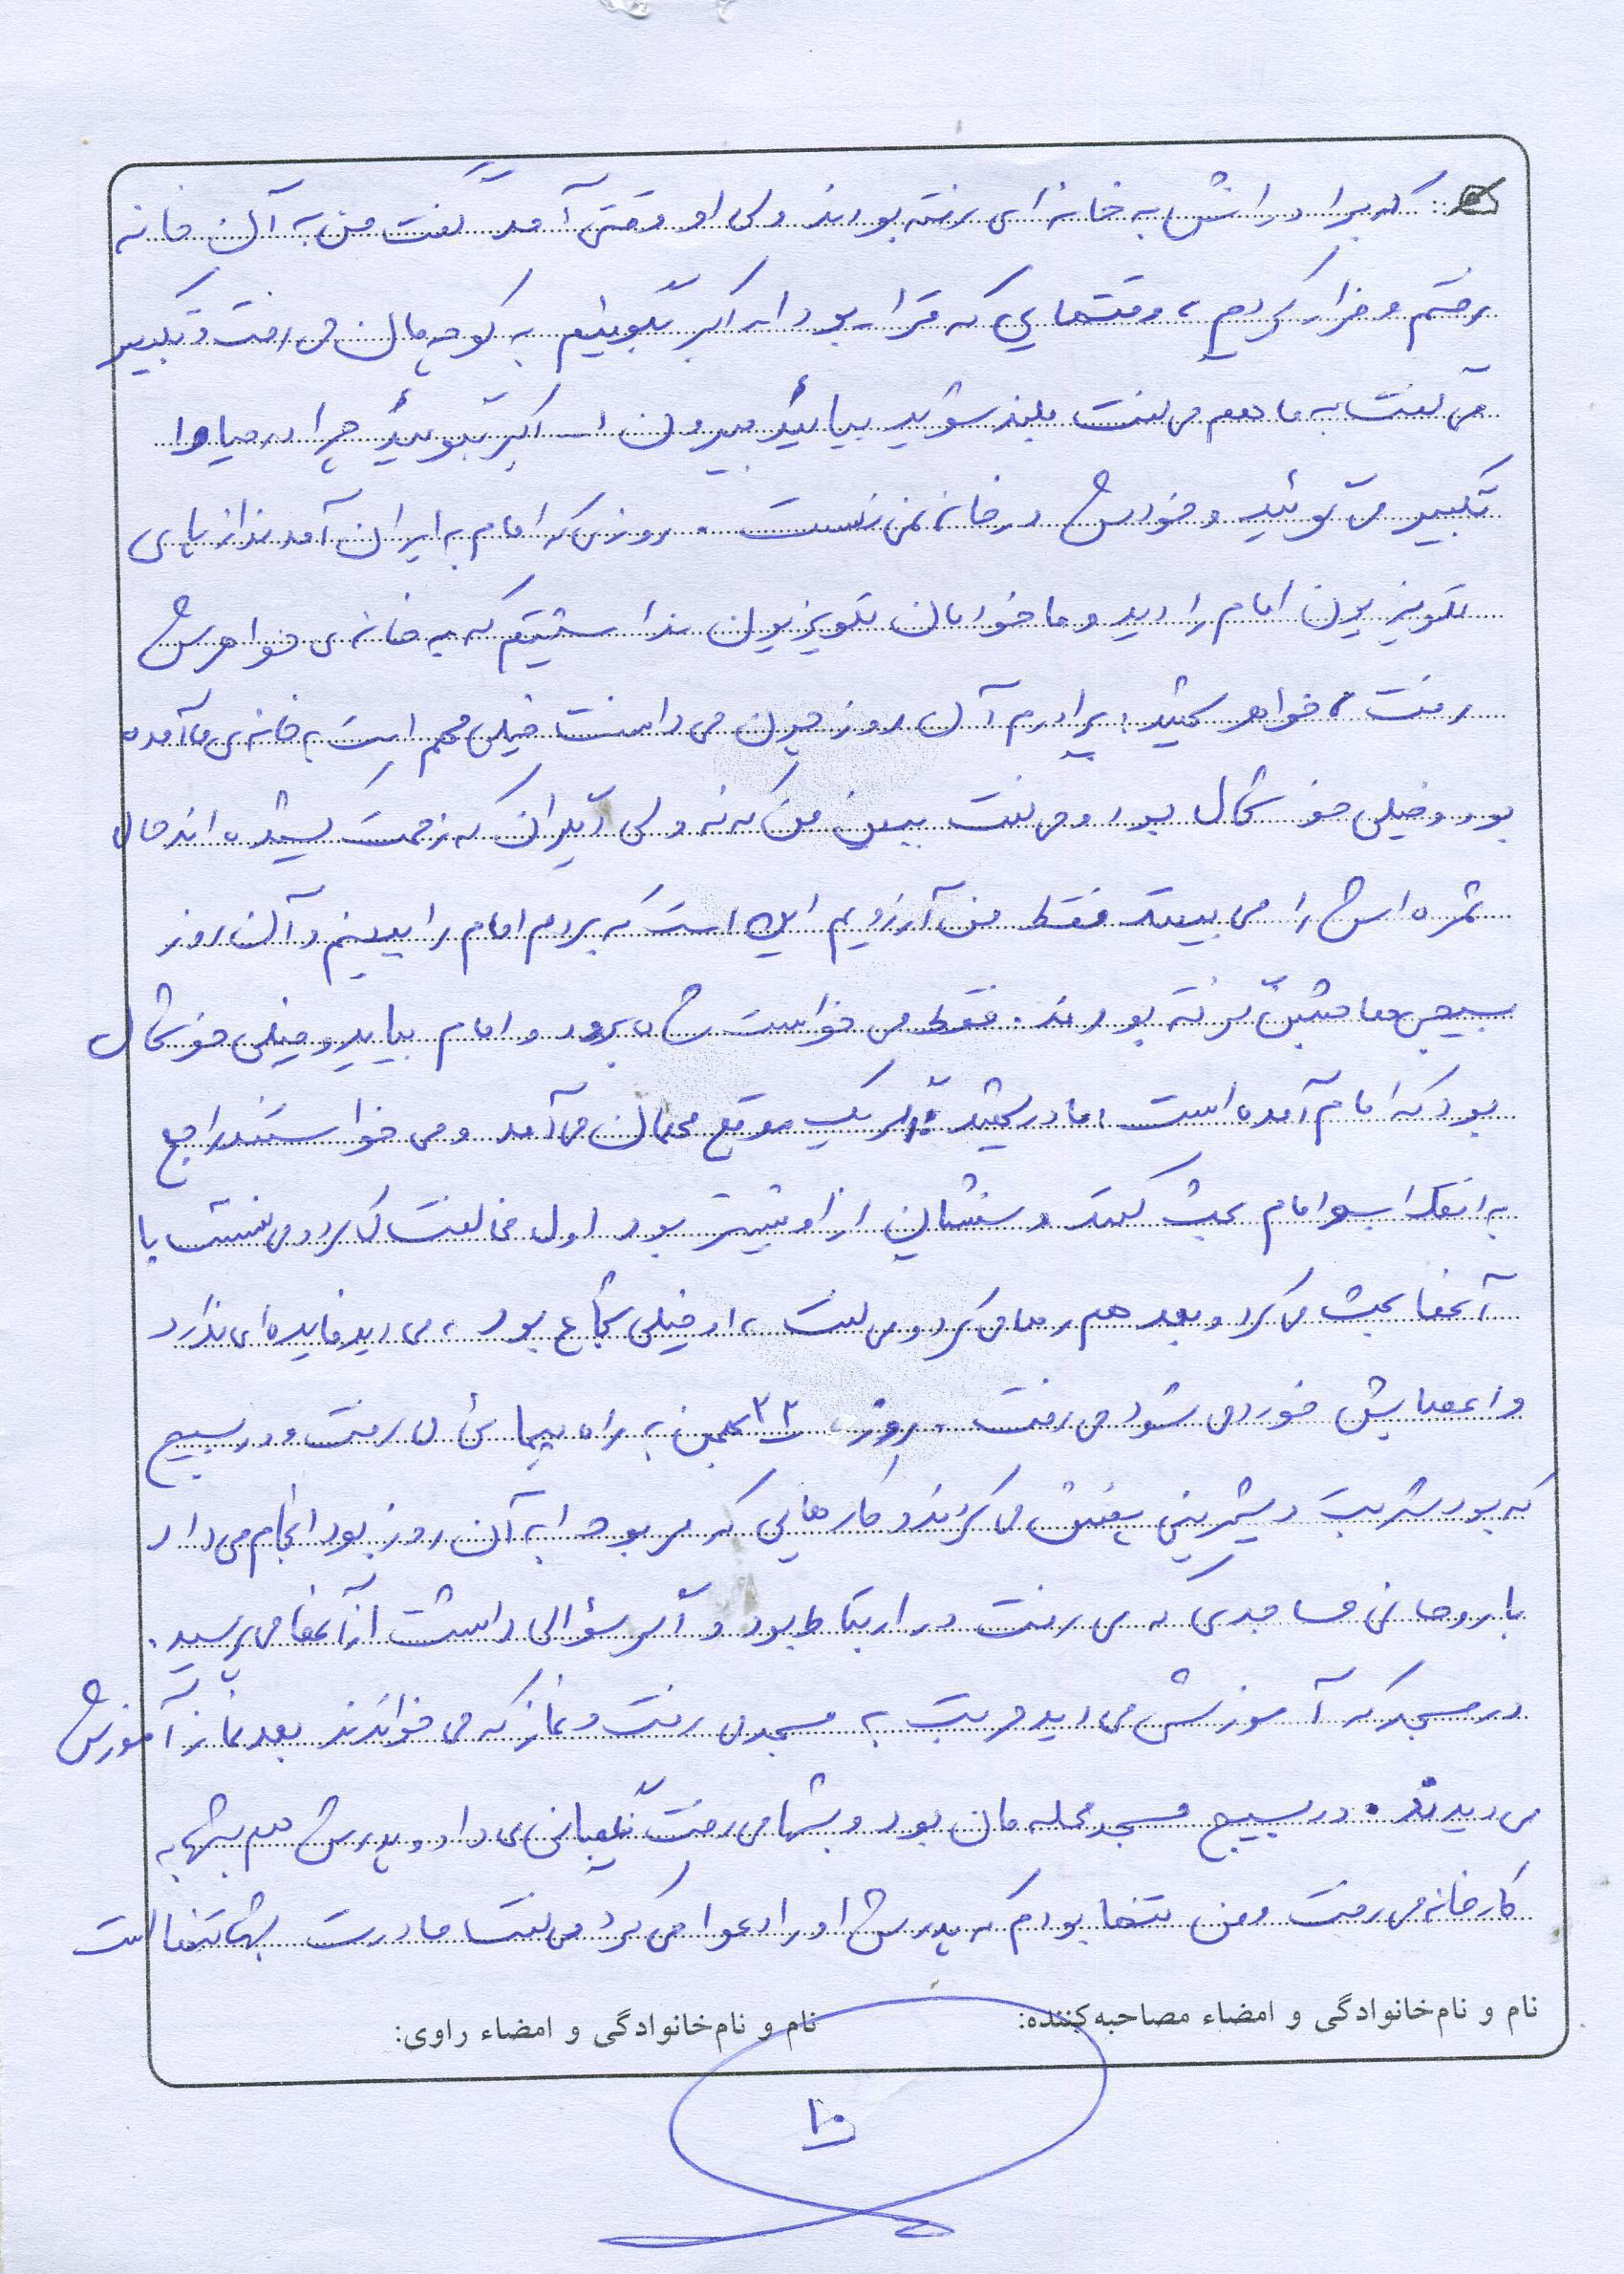 که برادرانش به خانه ای رفته بودند ولی او وقتی آمد گفت من به آن خانه
رفتم و فرار کردم، وقتهایی که قرار بود الله اکبر بگوئیم به کوچه مان می رفت و تکبیر
می گفت به ما هم می گفت بلند شوید بیائید بیرون الله اکبر بگوئید چرا در حیاط
تکبیر می گوئید و خودش در خانه نمی نشست. روزی که امام به ایران آمدند از پای
تلویزیون امام را دید و ما خودمان تلویزیون نداشتیم که به خانه ی خواهرش
رفت، خواهر شهید: برادرم آن روز چون می دانست خیلی مهم است به خانه ی ما آمده
بود و خیلی خوشحال بود و می گفت ببین من که نه ولی دیگران که زحمت کشیده اند حال
ثمره اش را می بینند فقط من آرزویم این است که بروم امام را ببینم و آن روز
بسیجی ها جشن گرفته بودند. فقط می خواست شاه برود و امام بیاید و خیلی خوشحال
بود که امام آمده است، مادر شهید: اگر یک موقع مهمان می آمد و می خواستند راجع
به انقلاب و امام بحث کنند و سنشان از او بیشتر بود اول مخالفت می کرد و می نشست با
آنها بحث می کرد و بعد هم رها می کرد و می گفت، او خیلی شجاع بود، می دید فایده ای ندارد
و اعصابش خورد می شود می رفت. روز ۲۲ بهمن به راه پیمائی می رفت و در بسیج
که بود شربت و شیرینی پخش می کردند و کارهایی که مربوط به آن روز بود انجام می داد
با روحانی مساجدی که می رفت در ارتباط بود و اگر سؤالی داشت از آنها می پرسید.
در مسجد که آموزش می دید مرتب به مسجد می رفت و نماز که می خواندند بعد نماز آموزش
می دیدند. در بسیج مسجد محله مان بود و شبها می رفت نگهبانی می داد و پدرش هم شبها به
کارخانه می رفت و من تنها بودم که پدرش او را دعوا می کرد می گفت مادرت شبها تنها است
نام و نام‌خانوادگی و امضاء مصاحبه‌کننده: نام و نام‌خانوادگی و امضاء راوی:
۱۰